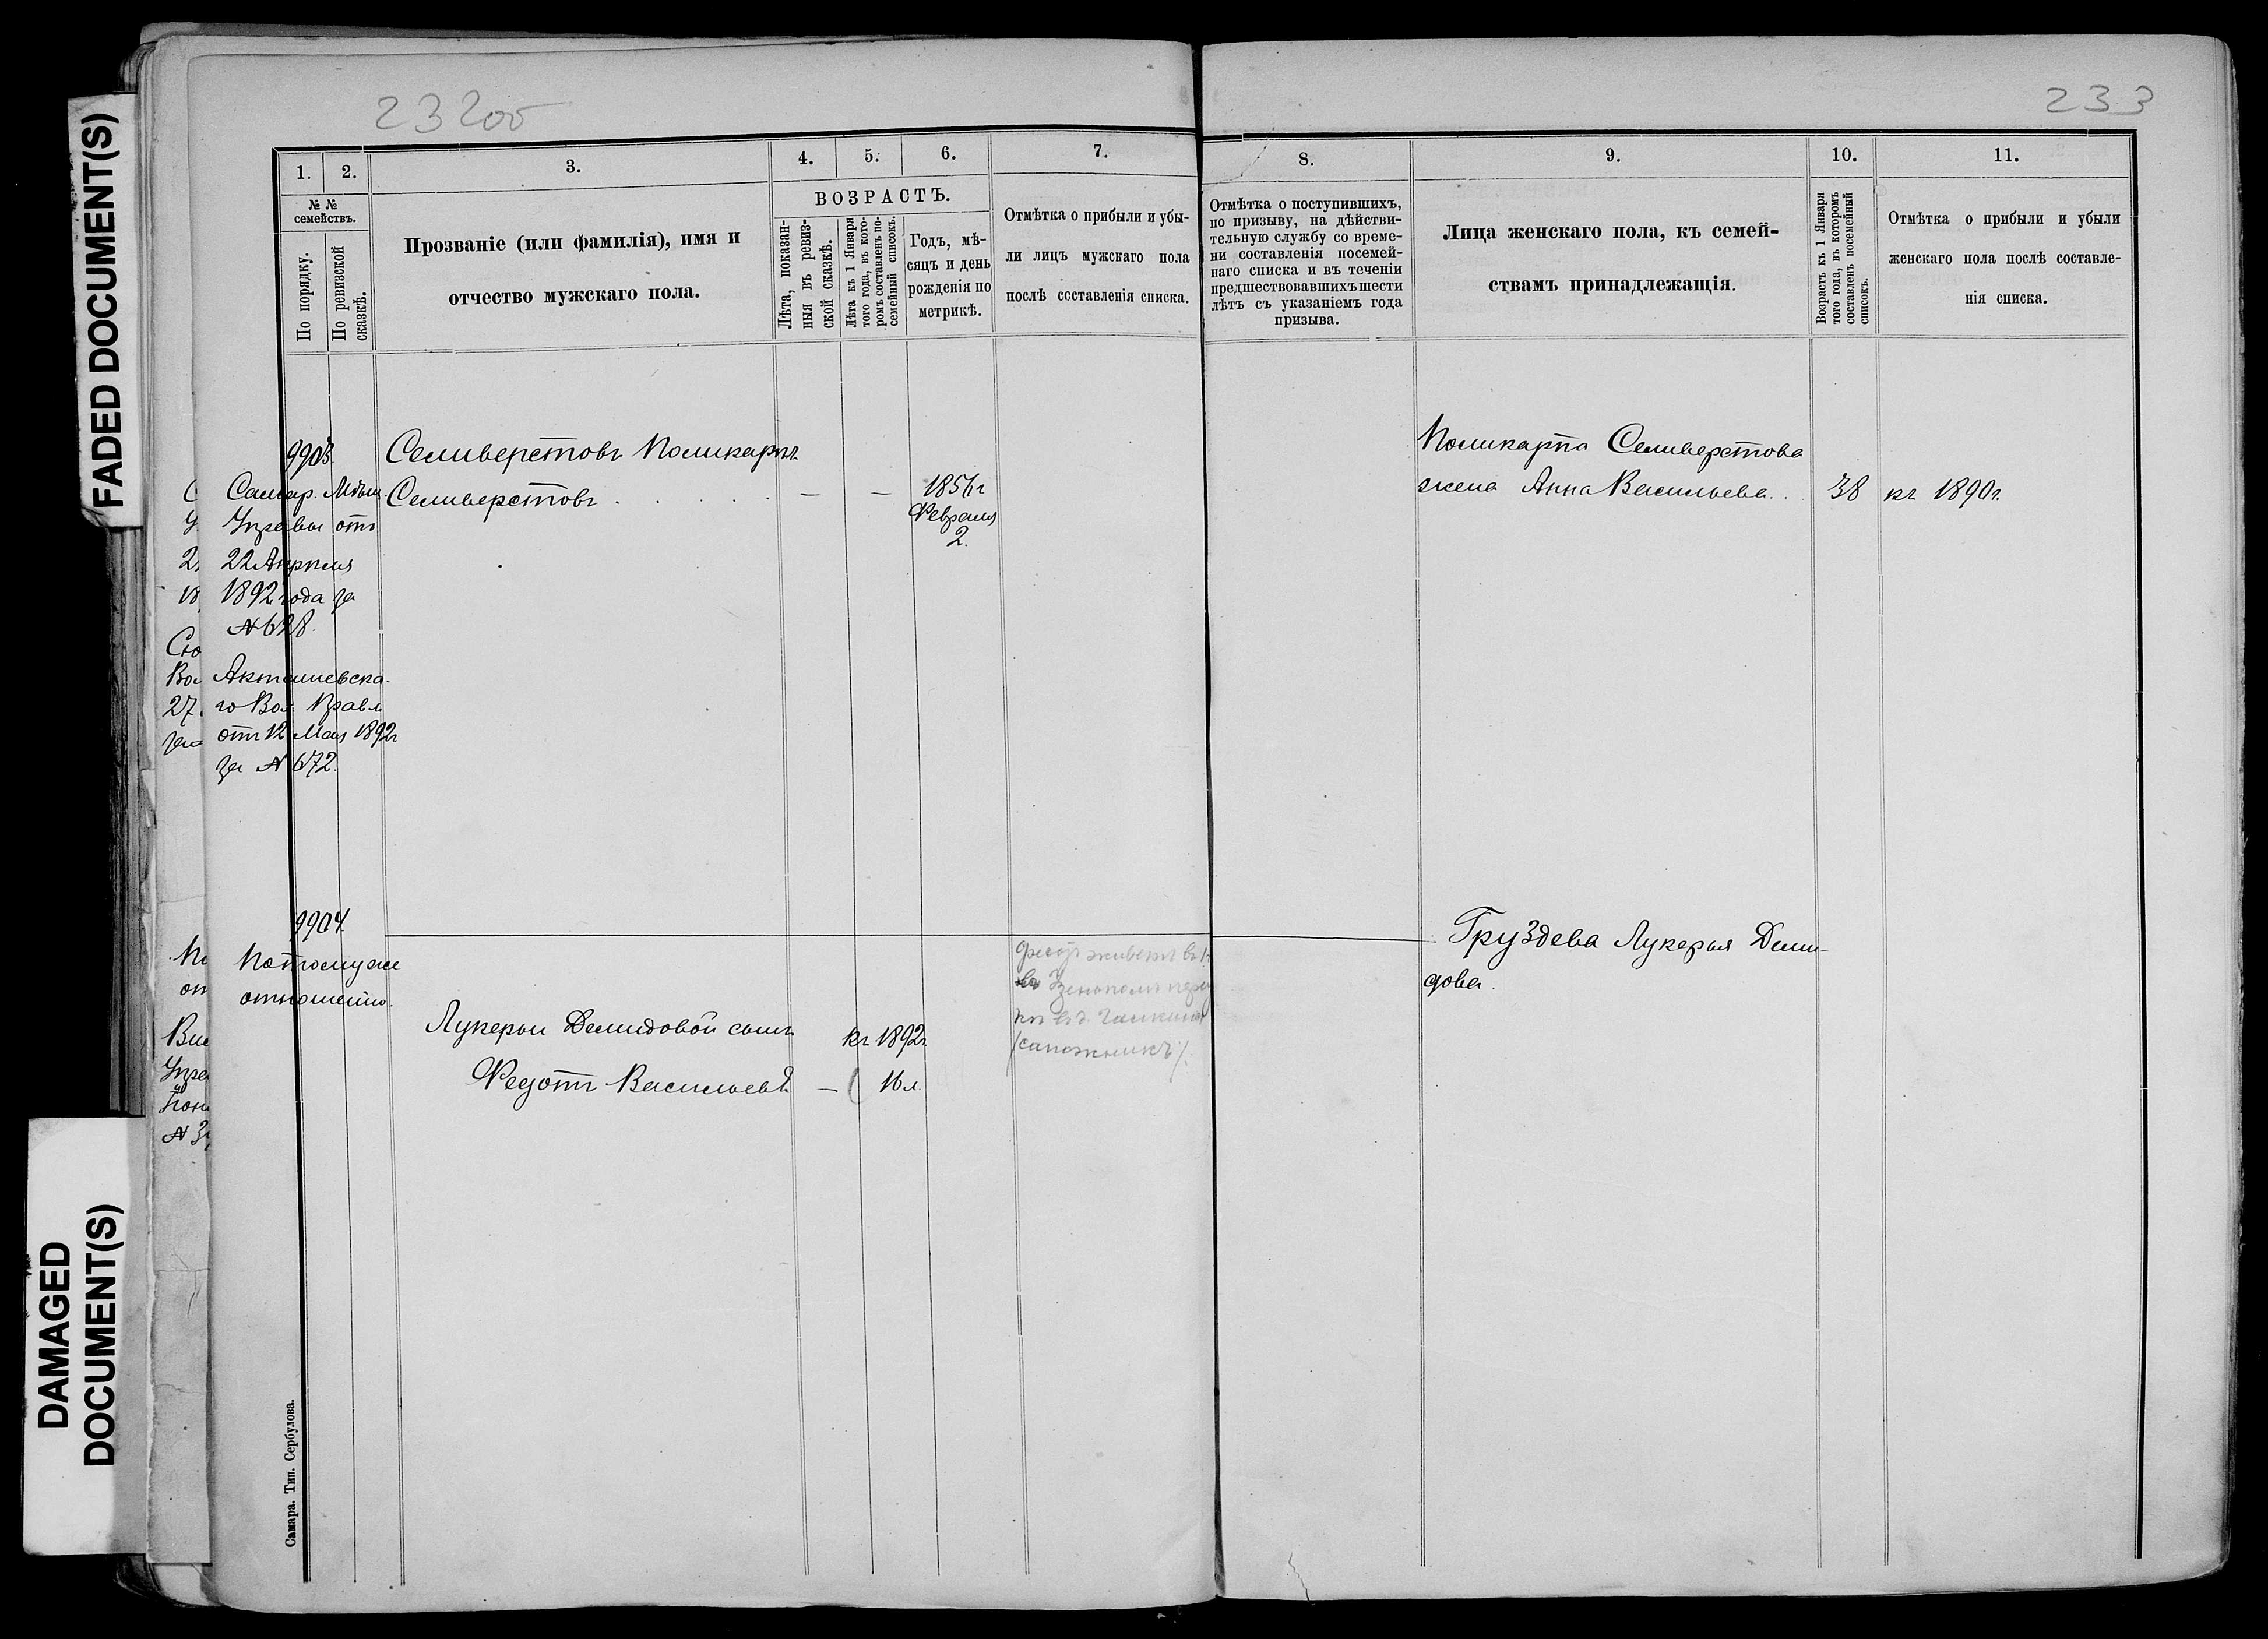 FADED DOCUMENT(S)
DAMAGED
DOCUMENT(S)
233
1.
2.
3.
4.
5.
6.
7.
№ №
семействъ.
По порядку.
По ревизской
сказкѣ.
Прозваніе (или фамилія), имя и
отчество мужскаго пола.
ВОЗРАСТЪ.
Лѣта, показан-
ныя въ ревиз-
ской сказкѣ.
Лѣта къ 1 Января
того года, въ кото-
ромъ составленъ по-
семейный списокъ.
Годъ, мѣ-
сяцъ и день
рожденія по
метрикѣ.
Отмѣтка о прибыли и убы-
ли лицъ мужскаго пола
послѣ составленія списка.
8.
9.
10.
11.
Отмѣтка о поступившихъ,
по призыву, на дѣйстви-
тельную службу со време-
ни составленія посемей-
наго списка и въ теченіи
предшествовавшихъ шести
лѣтъ съ указаніемъ года
призыва.
Лица женскаго пола, къ семей-
ствамъ принадлежащія.
Возрастъ къ 1 Января
того года, въ которомъ
составленъ посемейный
списокъ.
Отмѣтка о прибыли и убыли
женскаго пола послѣ составле-
нія списка.
9903.
Самар. Мѣщ.
Управы отъ
22 Апрѣля
1892 года за
Акташевска-
го Вол. Правл
отъ 12 Мая 1892г
за № 672.
Селиверстовъ Поликарпъ
Селиверстовъ . . . . . — —
1856г
Февраля
2.
Поликарпа Селиверстова
жена Анна Васильева . . 38 къ 1890г.
9904.
По тому же
отношенію.
Лукерьи Демидовой сынъ
Федотъ Васильевъ —
къ 1892г
16 л.
живетъ въ
(сапожникъ).
Груздева Лукерья Деми-
дова.
Самара. Тип. Сербулова.